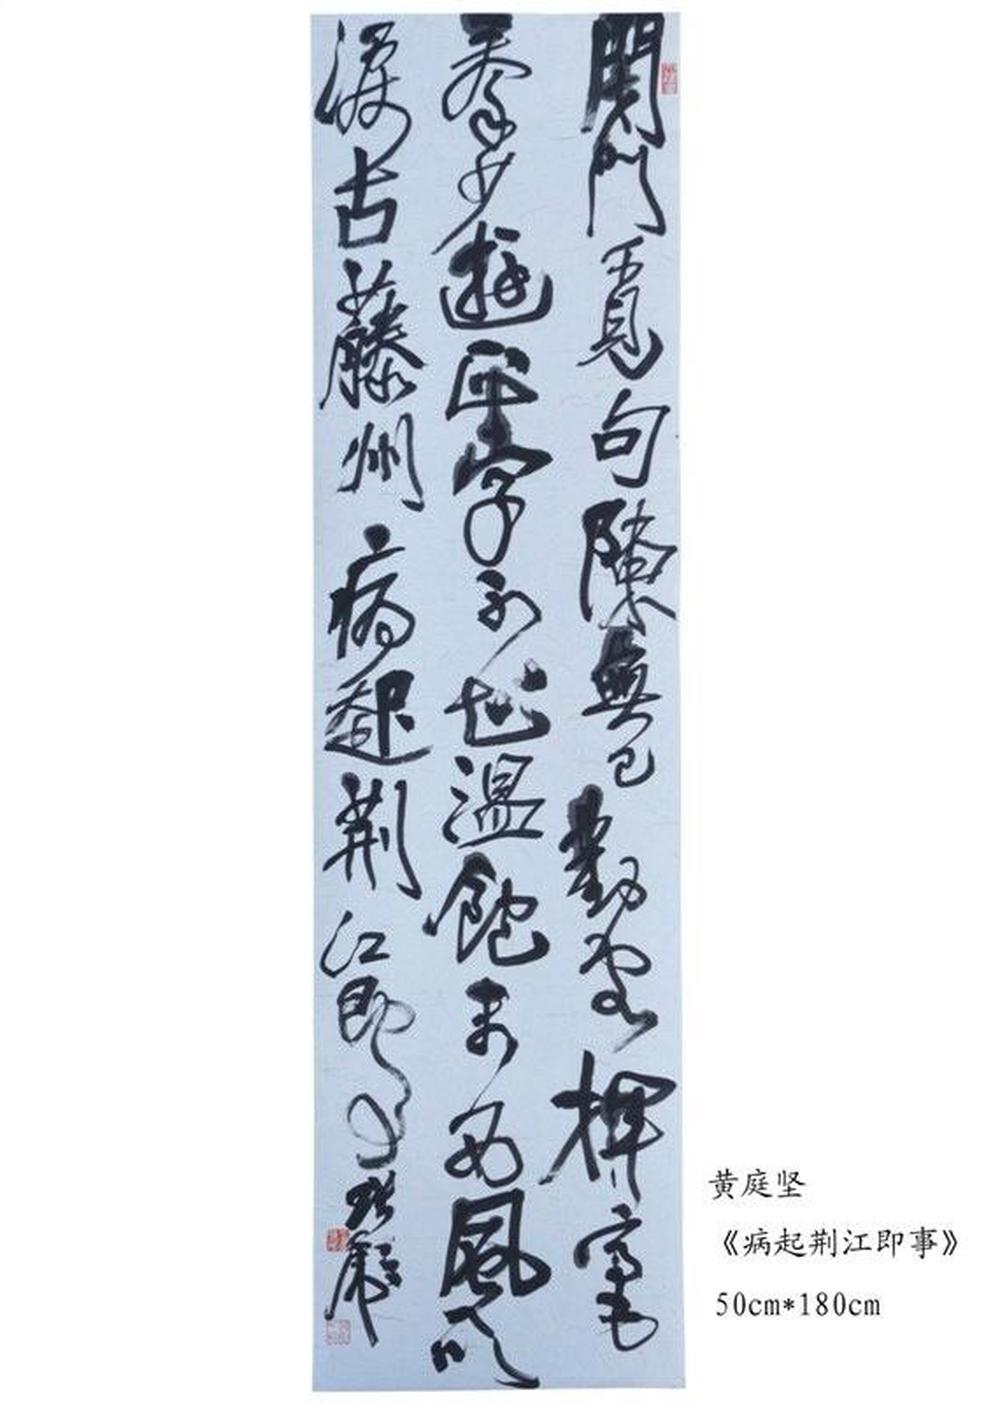 閉門覓句陳無己對客揮毫
秦少遊正字不知溫飽未西風吹
淚古藤州病起荊江即事
黄庭坚
《病起荆江即事》
50cm*180cm